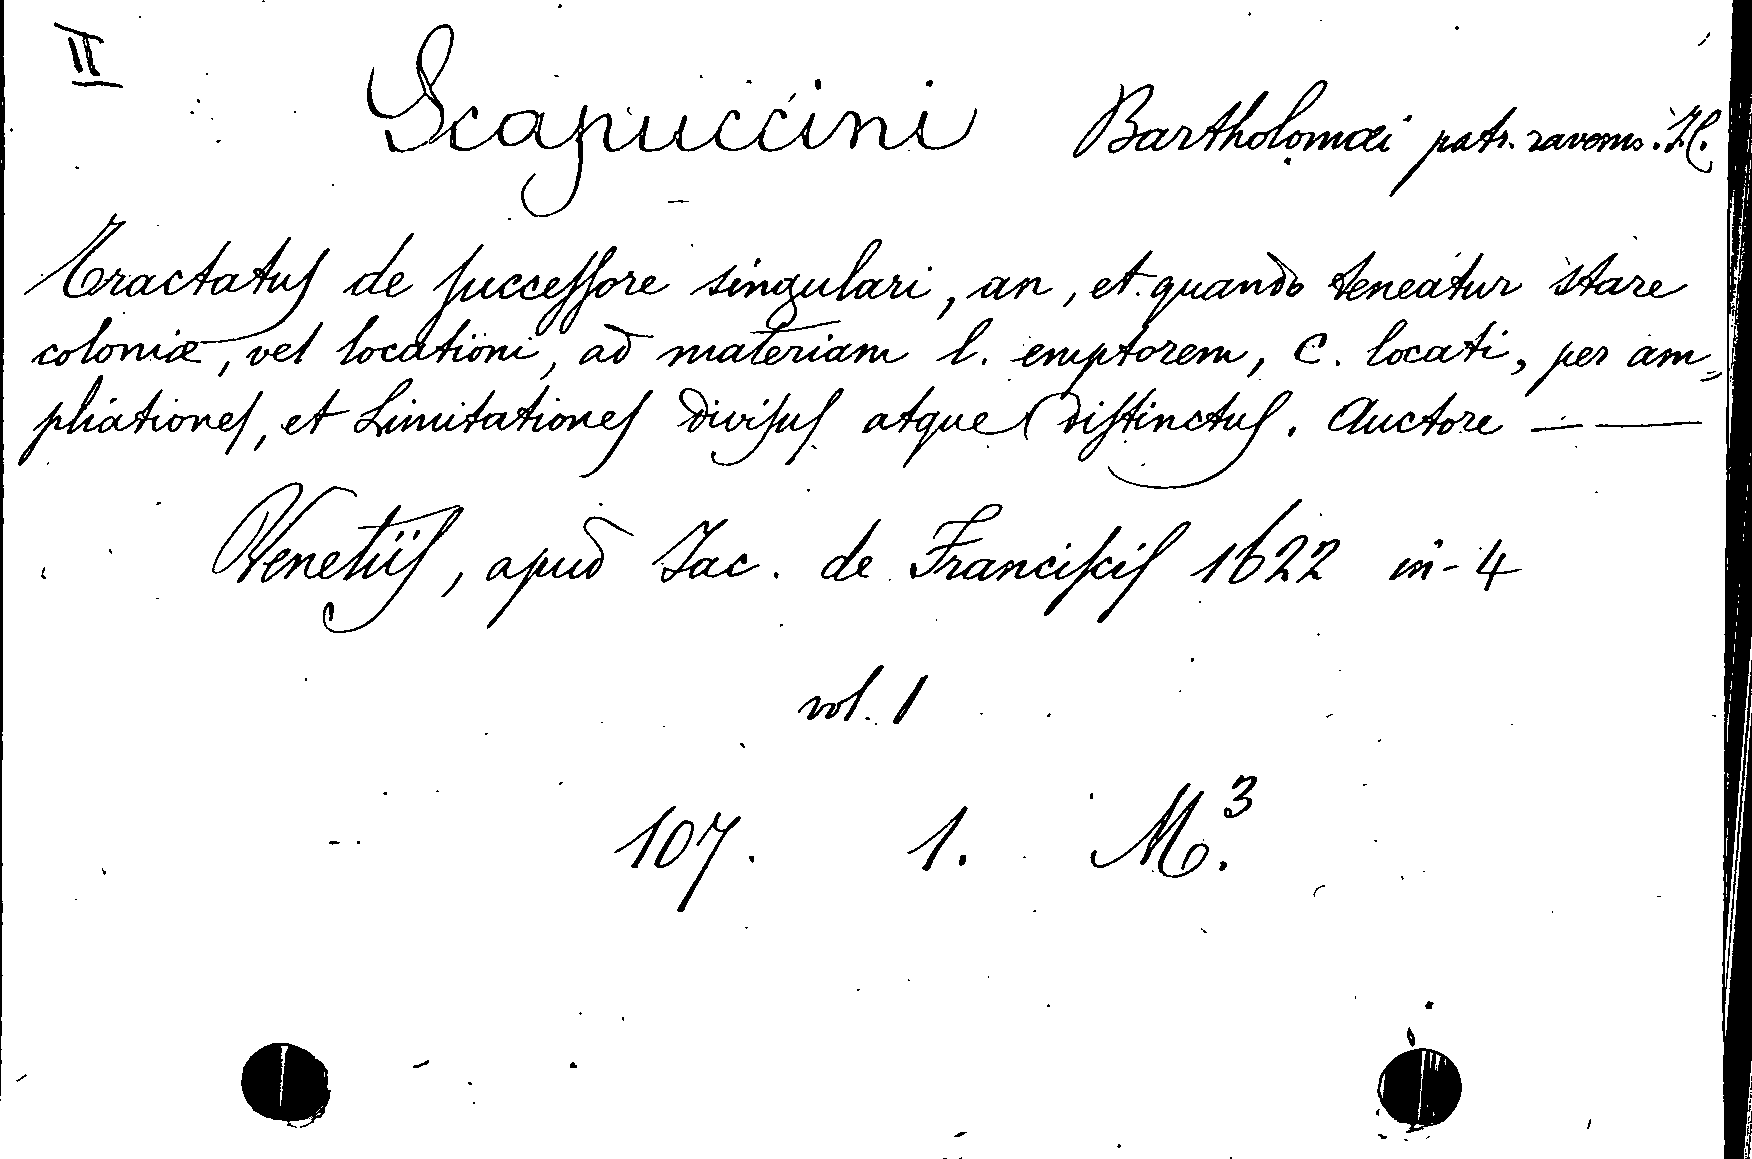 II
Scapuccini Bartholomæi patr. ravenns. J.C.
Tractatus de successore singulari, an, et quando teneatur stare
coloniæ, vel locationi, ad materiam l. emptorem, C. locati, per am=
pliationes, et Limitationes divisus atque distinctus. Auctore — —
Venetiis, apud Jac. de Franciscis 1622 in-4
vol. 1
107. 1. M.³